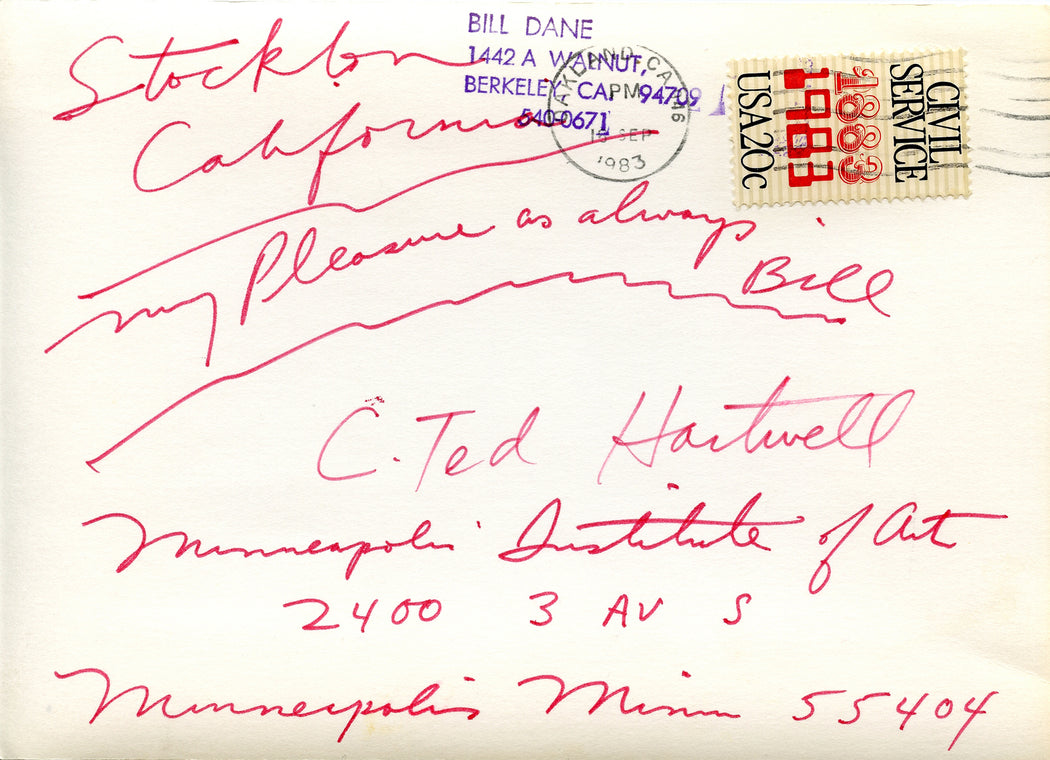 Stockton
California
BILL DANE
1442 A WALNUT,
BERKELEY, CA, 94709
540-0671
OAKLAND, CA 946
PM
SEP
1983
CIVIL
SERVICE
1883
1983
USA 20c
my Pleasure as always
Bill
C. Ted Hartwell
Minneapolis Institute of Art
2400 3 AV S
Minneapolis Minn 55404